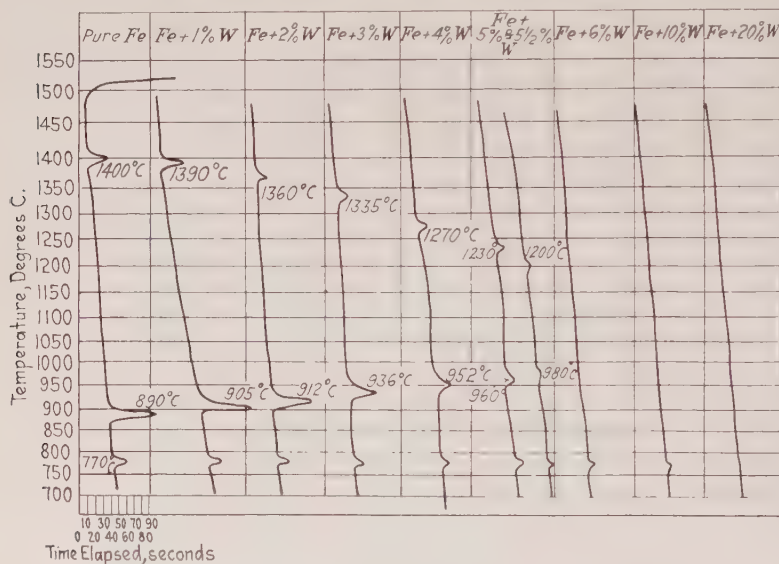 Pure Fe
Fe+1%W
Fe+2%W
Fe+3%W
Fe+4%W
Fe+
5%&5½%
W
Fe+6%W
Fe+10%W
Fe+20%W
1550
1500
1450
1400
1350
1300
1250
1200
1150
1100
1050
1000
950
900
850
800
750
700
Temperature, Degrees C.
1400°C
1390°C
1360°C
1335°C
1270°C
1230°
1200°C
890°C
905°C
912°C
936°C
952°C
960°
980°C
770°C
10 30 50 70 90
0 20 40 60 80
Time Elapsed, seconds